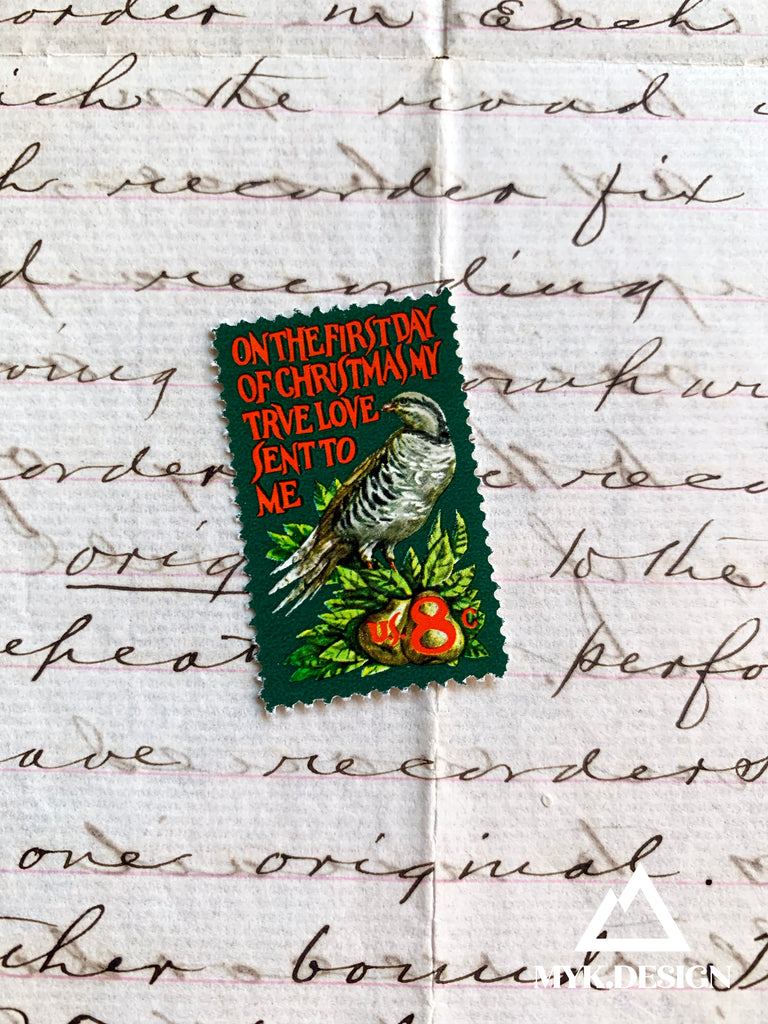 order in Each
ich the road
recorder fix
d recording
ON THE FIRST DAY
OF CHRISTMAS MY
TRVE LOVE
SENT TO
ME
order
orig
to the
U.S. 8c
epeat
perfo
ave recorders
one original.
ther bound
MYK.DESIGN